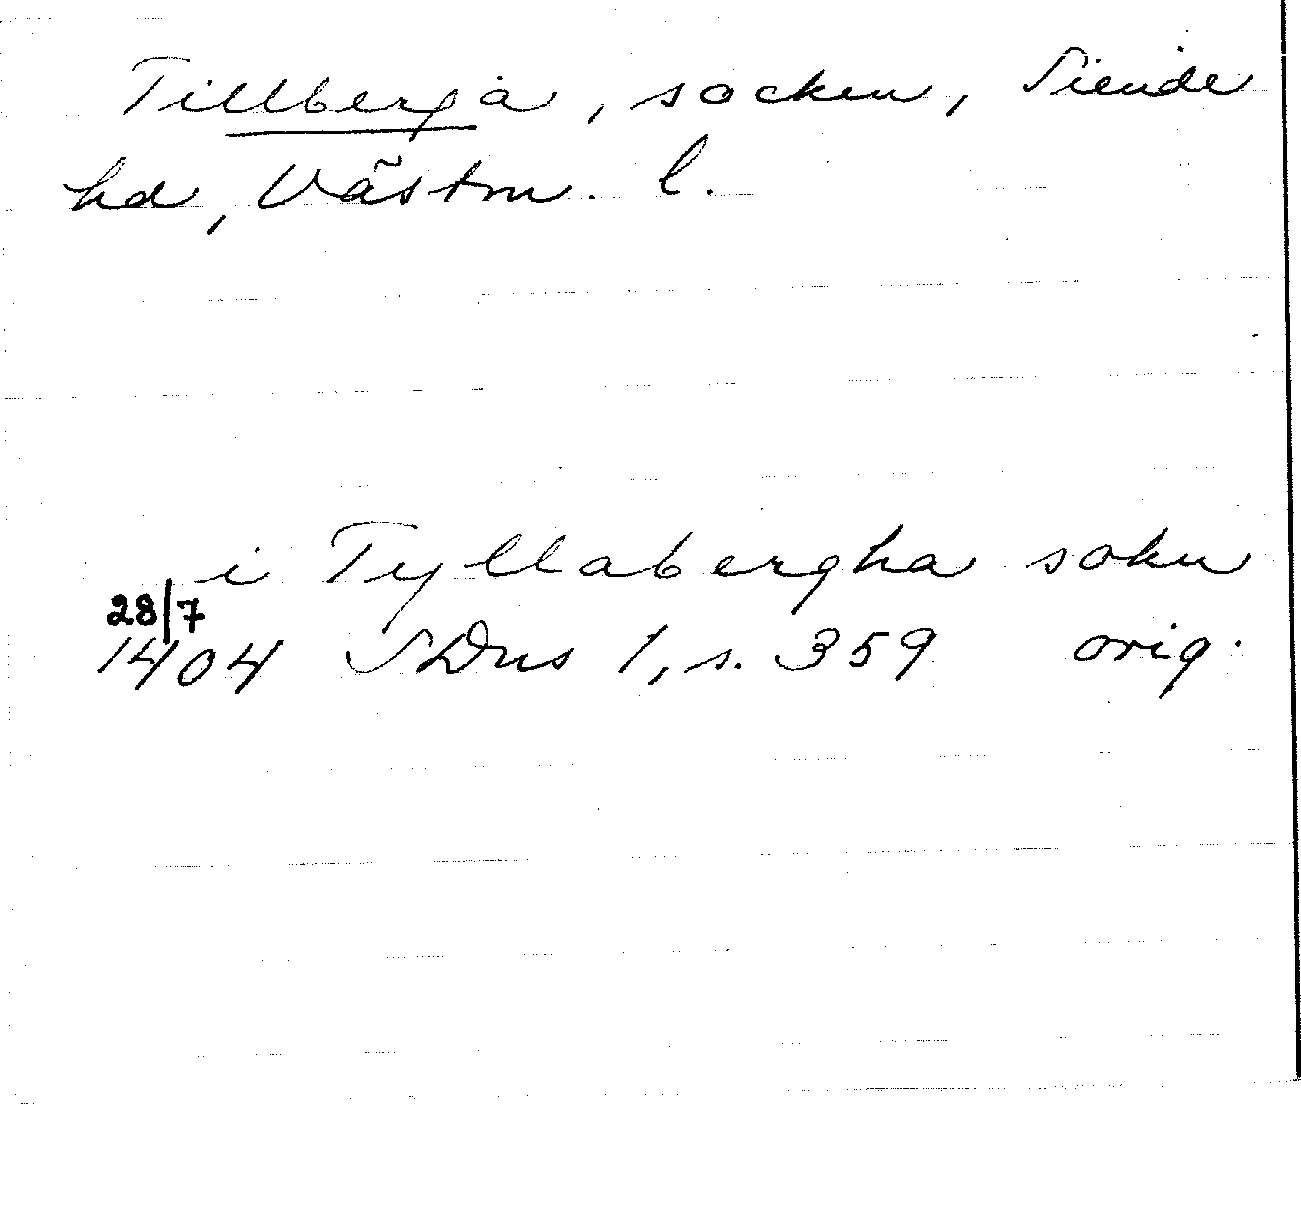 Tillberga, socken, Siende
hd, Västm. l.
i Tyllabergha sokn
28/7
1404 SDns 1, s. 359 orig.